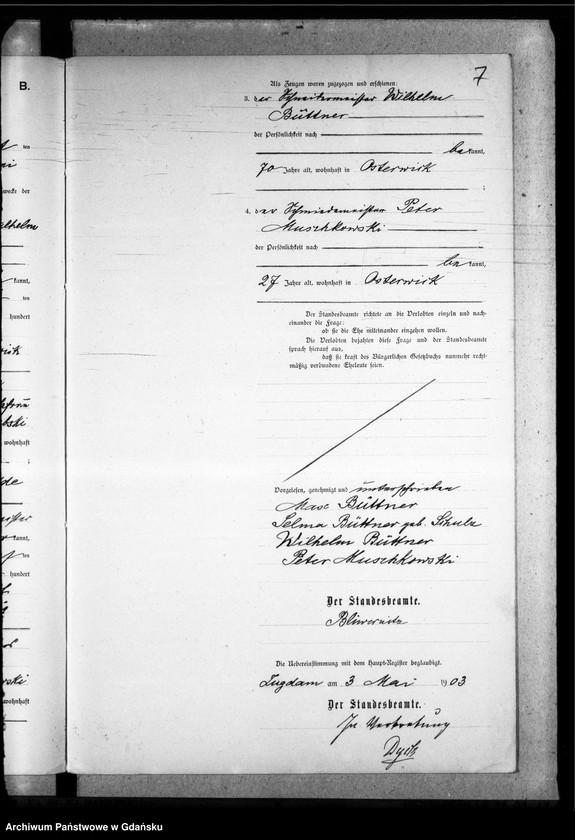 B.
7
Als Zeugen waren zugezogen und erschienen:
3. der Schneidermeister Wilhelm
Büttner
der Persönlichkeit nach
bekannt,
70 Jahre alt, wohnhaft in Osterwick
;
4. der Schmiedemeister Peter
Muschkowski
der Persönlichkeit nach
bekannt,
27 Jahre alt, wohnhaft in Osterwick
Der Standesbeamte richtete an die Verlobten einzeln und nach-
einander die Frage:
ob sie die Ehe miteinander eingehen wollen.
Die Verlobten bejahten diese Frage und der Standesbeamte
sprach hierauf aus,
daß sie kraft des Bürgerlichen Gesetzbuchs nunmehr recht-
mäßig verbundene Eheleute seien.
Vorgelesen, genehmigt und unterschrieben
Max Büttner
Selma Büttner geb. Schulz
Wilhelm Büttner
Peter Muschkowski
Der Standesbeamte.
Die Uebereinstimmung mit dem Haupt-Register beglaubigt.
Zugdam am 3 Mai 1903
Der Standesbeamte.
In Vertretung
Dyck
ten
zwecke der
kannt,
ten
hundert
wohnhaft
;
kannt,
ten
hundert
wohnhaft
Archiwum Państwowe w Gdańsku